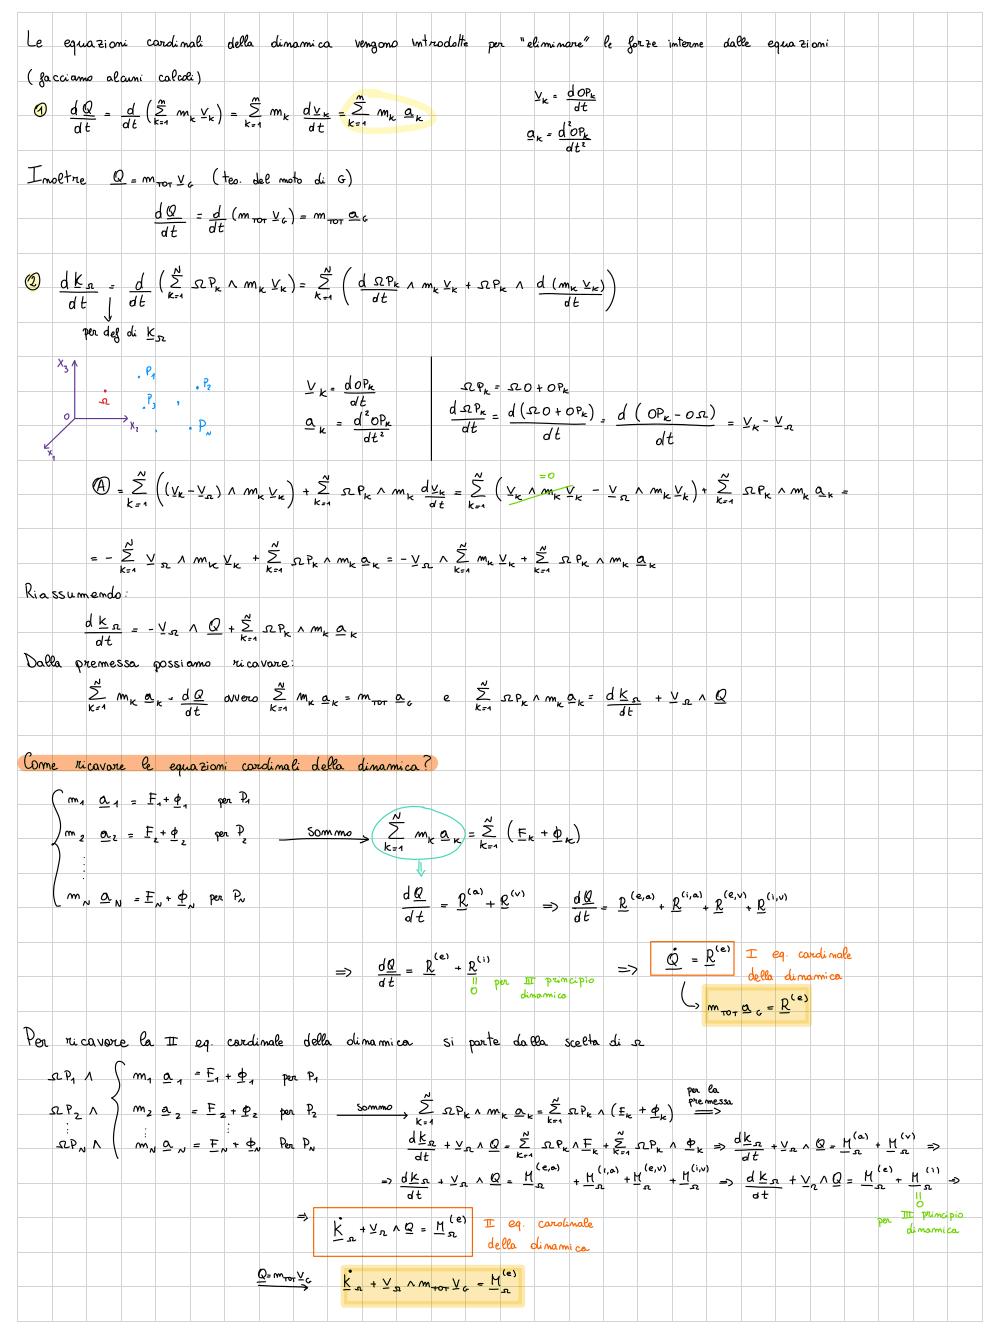 Le equazioni cardinali della dinamica vengono introdotte per "eliminare" le forze interne dalle equazioni
(facciamo alcuni calcoli)
① dQ/dt = d/dt (∑ₖ₌₁ⁿ mₖ v̲ₖ) = ∑ₖ₌₁ⁿ mₖ dv̲ₖ/dt = ∑ₖ₌₁ⁿ mₖ a̲ₖ
v̲ₖ = dOPₖ/dt
a̲ₖ = d²OPₖ/dt²
Inoltre Q̲ = m_TOT v̲_G (teo. del moto di G)
dQ̲/dt = d/dt (m_TOT v̲_G) = m_TOT a̲_G
② dK̲_Ω/dt = d/dt (∑ₖ₌₁ᴺ ΩPₖ ∧ mₖ v̲ₖ) = ∑ₖ₌₁ᴺ (dΩPₖ/dt ∧ mₖ v̲ₖ + ΩPₖ ∧ d(mₖ v̲ₖ)/dt)
per def di K̲_Ω
X₃ Ω O X₂ X₁ P₁ P₂ P₃ P_N
v̲ₖ = dOPₖ/dt
a̲ₖ = d²OPₖ/dt²
ΩPₖ = ΩO + OPₖ
dΩPₖ/dt = d(ΩO + OPₖ)/dt = d(OPₖ - OΩ)/dt = v̲ₖ - v̲_Ω
Ⓐ = ∑ₖ₌₁ᴺ ((v̲ₖ - v̲_Ω) ∧ mₖ v̲ₖ) + ∑ₖ₌₁ᴺ ΩPₖ ∧ mₖ dv̲ₖ/dt = ∑ₖ₌₁ᴺ (v̲ₖ ∧ mₖ v̲ₖ - v̲_Ω ∧ mₖ v̲ₖ) + ∑ₖ₌₁ᴺ ΩPₖ ∧ mₖ a̲ₖ =
=0
= - ∑ₖ₌₁ᴺ v̲_Ω ∧ mₖ v̲ₖ + ∑ₖ₌₁ᴺ ΩPₖ ∧ mₖ a̲ₖ = - v̲_Ω ∧ ∑ₖ₌₁ᴺ mₖ v̲ₖ + ∑ₖ₌₁ᴺ ΩPₖ ∧ mₖ a̲ₖ
Riassumendo:
dK̲_Ω/dt = - v̲_Ω ∧ Q̲ + ∑ₖ₌₁ᴺ ΩPₖ ∧ mₖ a̲ₖ
Dalla premessa possiamo ricavare:
∑ₖ₌₁ᴺ mₖ a̲ₖ = dQ̲/dt ovvero ∑ₖ₌₁ᴺ mₖ a̲ₖ = m_TOT a̲_G e ∑ₖ₌₁ᴺ ΩPₖ ∧ mₖ a̲ₖ = dK̲_Ω/dt + v̲_Ω ∧ Q̲
Come ricavare le equazioni cardinali della dinamica?
m₁ a̲₁ = F̲₁ + ϕ̲₁ per P₁
m₂ a̲₂ = F̲₂ + ϕ̲₂ per P₂
⋮
m_N a̲_N = F̲_N + ϕ̲_N per P_N
sommo → ∑ₖ₌₁ᴺ mₖ a̲ₖ = ∑ₖ₌₁ᴺ (F̲ₖ + ϕ̲ₖ)
dQ̲/dt = R̲^(a) + R̲^(v) ⇒ dQ̲/dt = R̲^(e,a) + R̲^(i,a) + R̲^(e,v) + R̲^(i,v)
⇒ dQ̲/dt = R̲^(e) + R̲^(i) ⇒ Q̲̇ = R̲^(e) I eq. cardinale della dinamica
= 0 per III principio dinamica
m_TOT a̲_G = R̲^(e)
Per ricavare la II eq. cardinale della dinamica si parte dalla scelta di Ω
ΩP₁ ∧ m₁ a̲₁ = F̲₁ + ϕ̲₁ per P₁
ΩP₂ ∧ m₂ a̲₂ = F̲₂ + ϕ̲₂ per P₂
⋮
ΩP_N ∧ m_N a̲_N = F̲_N + ϕ̲_N Per P_N
sommo → ∑ₖ₌₁ᴺ ΩPₖ ∧ mₖ a̲ₖ = ∑ₖ₌₁ᴺ ΩPₖ ∧ (F̲ₖ + ϕ̲ₖ) per la premessa ⇒
dK̲_Ω/dt + v̲_Ω ∧ Q̲ = ∑ₖ₌₁ᴺ ΩPₖ ∧ F̲ₖ + ∑ₖ₌₁ᴺ ΩPₖ ∧ ϕ̲ₖ ⇒ dK̲_Ω/dt + v̲_Ω ∧ Q̲ = M̲_Ω^(a) + M̲_Ω^(v) ⇒
⇒ dK̲_Ω/dt + v̲_Ω ∧ Q̲ = M̲_Ω^(e,a) + M̲_Ω^(i,a) + M̲_Ω^(e,v) + M̲_Ω^(i,v) ⇒ dK̲_Ω/dt + v̲_Ω ∧ Q̲ = M̲_Ω^(e) + M̲_Ω^(i) ⇒
= 0 per III principio dinamica
⇒ K̲̇_Ω + v̲_Ω ∧ Q̲ = M̲_Ω^(e) II eq. cardinale della dinamica
Q̲ = m_TOT v̲_G → K̲̇_Ω + v̲_Ω ∧ m_TOT v̲_G = M̲_Ω^(e)